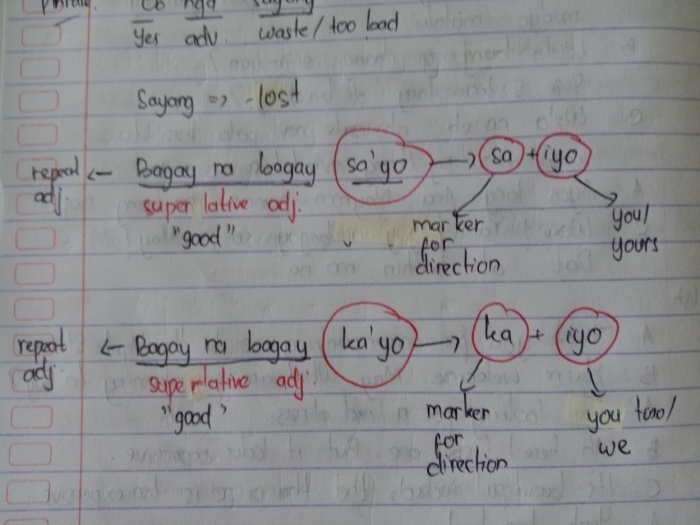 Yes adv. waste / too bad
Sayang => - lost
repeat adj <- Bagay na bagay sa'yo -> sa + iyo
super lative adj.
"good"
marker for direction
you/ yours
repeat adj <- Bagay na bagay ka'yo -> ka + iyo
super lative adj.
"good"
marker for direction
you two/ we